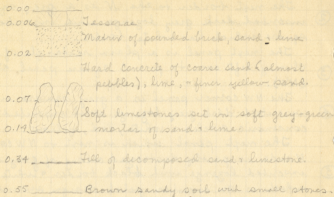 0.00
0.006 Tesserae
Matrix of pounded brick, sand + lime
0.02
Hard concrete of coarse sand (almost
pebbles), lime, + finer yellow sand.
0.07
Soft limestones set in soft grey-green
0.19 mortar of sand + lime
0.34 Fill of decomposed sand + limestone.
0.55 Brown sandy soil with small stones.